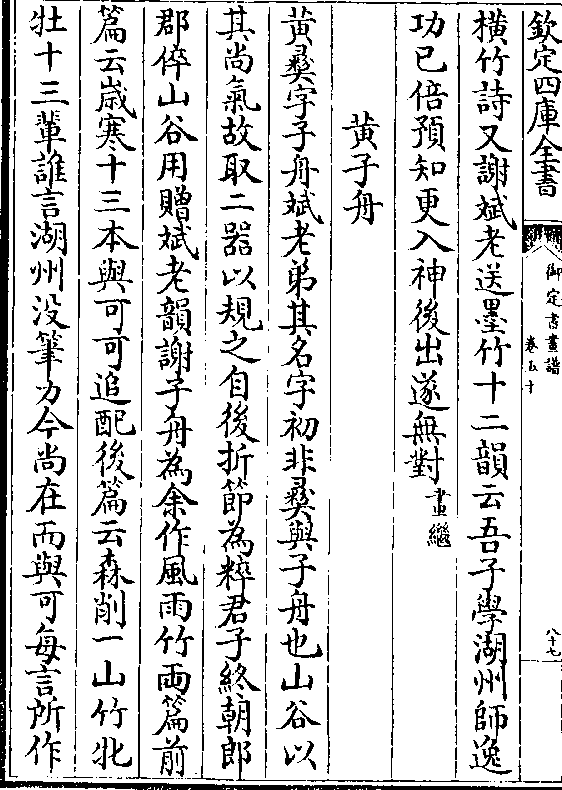 欽定四庫全書
御定書畫譜
卷五十
八十七
橫竹詩又謝斌老送墨竹十二韻云吾子學湖州師逸
功已倍預知更入神後出遂無對畫繼
黃子舟
黃彛字子舟斌老弟其名字初非彛與子舟也山谷以
其尚氣故取二器以規之自後折節為粹君子終朝郎
郡倅山谷用贈斌老韻謝子舟為余作風雨竹兩篇前
篇云歲寒十三本與可可追配後篇云森削一山竹牝
牡十三輩誰言湖州沒筆力今尚在而與可每言所作